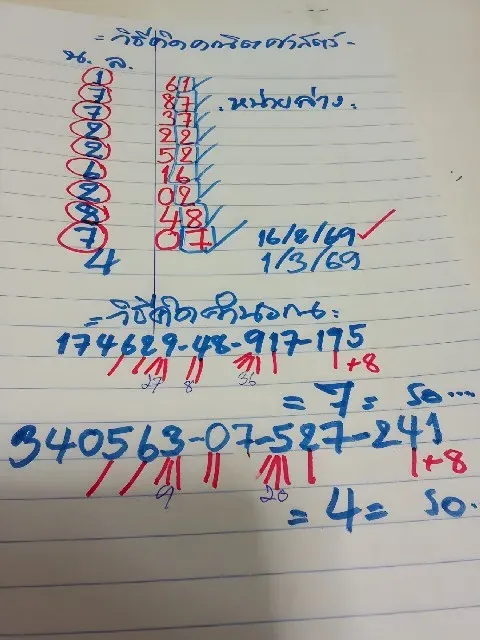 = วิธีคิดคณิตศาสตร์ =
น. ล.
1 61
7 87 หน่วยล่าง.
7 37
2 22
2 52
6 16
2 02
8 48
7 07 16/2/69
4 1/3/69
= วิธีคิดคำนวณ =
174629-48-917-195
27 8 36 +8
= 7 = รอ...
340563-07-527-241
9 20 +8
= 4 = รอ..